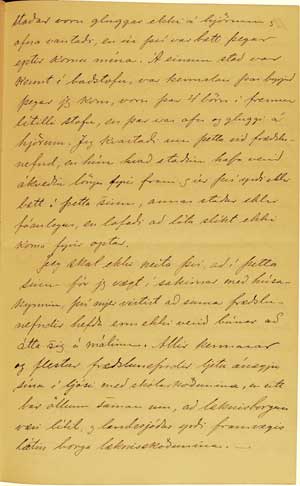 staðar voru gluggar ekki á hjörum og
ofna vantaði, en úr því var bætt þegar
eptir komu mína. Á einum stað var
kennt í baðstofu, var kennslan þar byrjuð
þegar jeg kom, voru þar 4 börn í fremur
lítilli stofu, en þar var ofn og gluggi á
hjörum. Jeg kvartaði um þetta við fræðslu-
nefnd, en hún kvað staðinn hafa verið
ákveðin löngu fyrir fram, og úr því yrði ekki
bætt í þetta sinn, annar staður ekki
fáanlegur, en lofaði að láta slíkt ekki
koma fyrir optar.
Jeg skal ekki neita því, að í þetta
sinn fór jeg vægt í sakirnar með húsa-
kynnin, því mjer virtist að sumar fræðslu-
nefndir hefðu enn ekki verið búnar að
átta sig á málinu. Allir kennarar
og flestar fræðslunefndir ljetu ánægju
sína í ljósi með skólaskoðunina, en eitt
bar öllum saman um, að læknisborgun
væri lítil, og landssjóður yrði framvegis
látinn borga læknisskoðunina. —